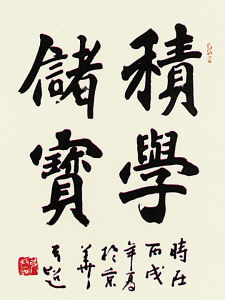 積學
儲寶
時在
丙戌
年夏
於京
華